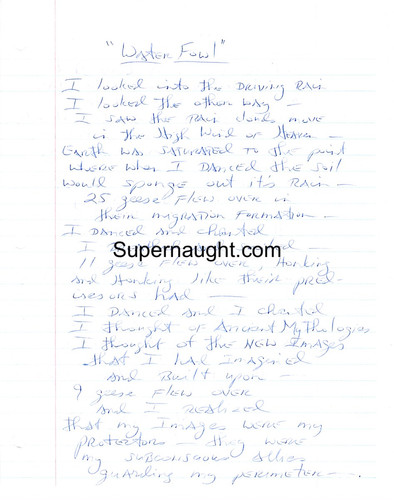 "Water Fowl"
I looked into the Driving Rain
I looked the other way —
I saw the Rain clouds move
in the High Wind of Heaven —
Earth was saturated to the point
where when I Danced the soil
would sponge out it's Rain —
25 geese flew over in
their migration formation —
I Danced and chanted
Supernaught.com
I
11 geese flew over, Honking
and Honking like their pred-
ucesors had —
I Danced and I chanted,
I thought of Ancient Mythologies
I thought of the New Images
that I had Imagined
and Built upon —
9 geese flew over
and I Realized
that my Images were my
protectors — they were
my subconscous allies
guarding my perimeter — .